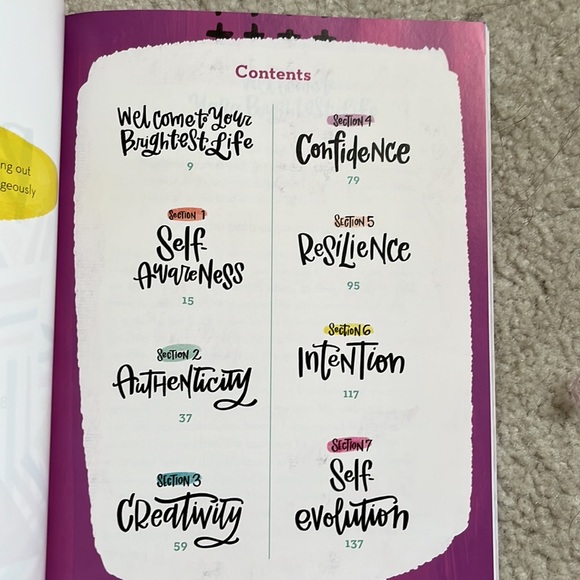 ng out
geously
Contents
Welcome to Your
Brightest Life
9
Section 1
Self-
Awareness
15
Section 2
Authenticity
37
Section 3
Creativity
59
Section 4
Confidence
79
Section 5
Resilience
95
Section 6
Intention
117
Section 7
Self-
evolution
137